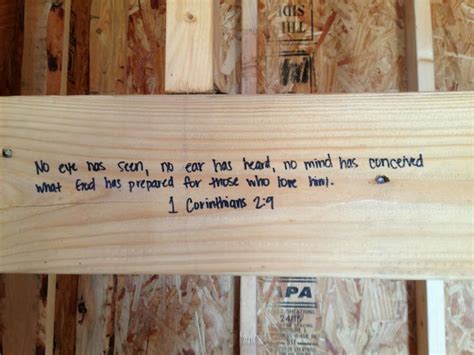 THIS
SIDE
No eye has seen, no ear has heard, no mind has conceived
what God has prepared for those who love him.
1 Corinthians 2:9
APA
SHEATHING
24/16